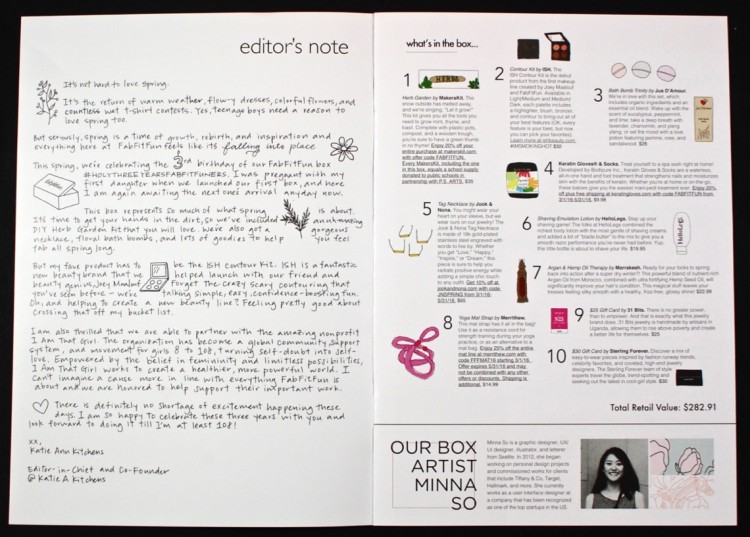 editor's note
It's not hard to love spring.
It's the return of warm weather, flowy dresses, colorful flowers, and
countless wet t-shirt contests. Yes, teenage boys need a reason to
love spring too.
But seriously, spring is a time of growth, rebirth, and inspiration and
everything here at FabFitFun feels like its falling into place
This spring, we're celebrating the 3rd birthday of our FabFitFun box
#HOLYTHREEYEARSFABFITFUNERS. I was pregnant with my
first daughter when we launched our first box, and here
I am again awaiting the next one's arrival anyday now.
This box represents so much of what spring is about.
Its time to get your hands in the dirt, so we've included an amazing
DIY Herb Garden Kit that you will love. We've also got a gorgeous
necklace, floral bath bombs, and lots of goodies to help you feel
fab all spring long.
But my fave product has to be the ISH contour kit. ISH is a fantastic
new beauty brand that we helped launch with our friend and
beauty genius, Joey Maalouf. Forget the crazy scary contouring that
you've seen before - we're talking simple, easy, confidence-boosting fun.
Oh, and helping to create a new beauty line? Feeling pretty good about
crossing that off my bucket list.
I am also thrilled that we are able to partner with the amazing nonprofit
I Am That Girl. The organization has become a global community, support
system, and movement for girls 8 to 108, turning self-doubt into self-
love. Empowered by the belief in femininity and limitless possibilities,
I Am That Girl works to create a healthier, more powerful world. I
can't imagine a cause more in line with everything FabFitFun is
about and we are honored to help support their important work.
There is definitely no shortage of excitement happening these
days. I am so happy to celebrate these three years with you and
look forward to doing it till I'm at least 108!
xx,
Katie Ann Kitchens
Editor-in-Chief and Co-Founder
@KatieAKitchens
what's in the box...
1
HERB
Herb Garden by MakersKit. The
snow outside has melted away,
and we're singing, "Let it grow!"
This kit gives you all the tools you
need to grow mint, thyme, and
basil. Complete with plastic pots,
compost, and a wooden trough,
you're sure to have a green thumb
in no thyme! Enjoy 20% off your
entire purchase at makerskit.com
with offer code FABFITFUN.
Every MakersKit, including the one
in this box, equals a school supply
donated to public schools in
partnership with P.S. ARTS. $35
2
Contour Kit by ISH. The
ISH Contour Kit is the debut
product from the first makeup
line created by Joey Maalouf
and FabFitFun. Available in
Light/Medium and Medium/
Dark, each palette includes
a highlighter, blush, bronzer,
and contour to bring out all of
your best features (OK, every
feature is your best, but now
you can pick your favorites).
Learn more at ishbeauty.com.
#IMSMOKINGHOT $30
3
Bath Bomb Trinity by Jus D'Amour.
We're in love with this set, which
includes organic ingredients and an
essential oil blend. Wake up with the
scent of eucalyptus, peppermint,
and lime; take a deep breath with
lavender, chamomile, and ylang
ylang, or set the mood with a love
potion featuring jasmine, rose, and
sandalwood. $26
4
Keratin Gloves® & Socks. Treat yourself to a spa week right at home!
Developed by Biotique Inc., Keratin Gloves & Socks are a waterless,
all-in-one hand and foot treatment that strengthens nails and moisturizes
skin with the benefits of keratin. Whether you're at home or on the go,
these babies give you the easiest mani-pedi treatment ever. Enjoy 20%
off plus free shipping at keratingloves.com with code FABFITFUN from
3/1/16-5/31/16. $9.98
5
Tag Necklace by Jook &
Nona. You might wear your
heart on your sleeve, but we
wear ours on our jewelry! The
Jook & Nona Tag Necklace
is made of 18k gold-plated
stainless steel engraved with
words to live by. Whether
you get "Love," "Happy,"
"Inspire," or "Dream," this
piece is sure to help you
radiate positive energy while
adding a simple chic touch
to any outfit. Get 10% off at
jookandnona.com with code
JNSPRING from 3/1/16-
5/31/16. $45
6
Shaving Emulsion Lotion by HelloLegs. Step up your
shaving game! The folks at HelloLegs combined the
richest body lotion with the most gentle of shaving creams
and added a lot of "blade-butter" to the mix to give you a
smooth razor performance you've never had before. Yup,
this little bottle is about to shave your life. $19.95
7
Argan & Hemp Oil Therapy by Marrakesh. Ready for your locks to spring
back into action after a super dry winter? This powerful blend of nutrient-rich
Argan Oil from Morocco, combined with ultra fortifying Hemp Seed Oil, will
significantly improve your hair's condition. This magical stuff will leave your
tresses feeling silky smooth with a healthy, frizz-free, glossy sheen! $22.99
8
Yoga Mat Strap by Merrithew.
This mat strap has it all in the bag!
Use it as a resistance cord for
strength training during your yoga
practice, or as an alternative to a
mat bag. Enjoy 25% off the entire
mat line at merrithew.com with
code FFFMAT16 starting 3/1/16.
Offer expires 5/31/16 and may
not be combined with any other
offers or discounts. Shipping is
additional. $14.99
9
$25 Gift Card by 31 Bits. There is no greater power,
than to empower. And that is exactly what this jewelry
brand does. 31 Bits jewelry is handmade by artisans in
Uganda, allowing them to rise above poverty and create
a better life for themselves. $25
10
$30 Gift Card by Sterling Forever. Discover a mix of
easy-to-wear pieces inspired by fashion runway trends,
celebrity favorites, and coveted, high-end jewelry
designers. The Sterling Forever team of style
experts travel the globe, trend-spotting and
seeking out the latest in cool-girl style. $30
Total Retail Value: $282.91
OUR BOX
ARTIST
MINNA
SO
Minna So is a graphic designer, UX/
UI designer, illustrator, and letterer
from Seattle. In 2012, she began
working on personal design projects
and commissioned works for clients
that include Tiffany & Co, Target,
Hallmark, and more. She currently
works as a user interface designer at
a company that has been recognized
as one of the top startups in the US.